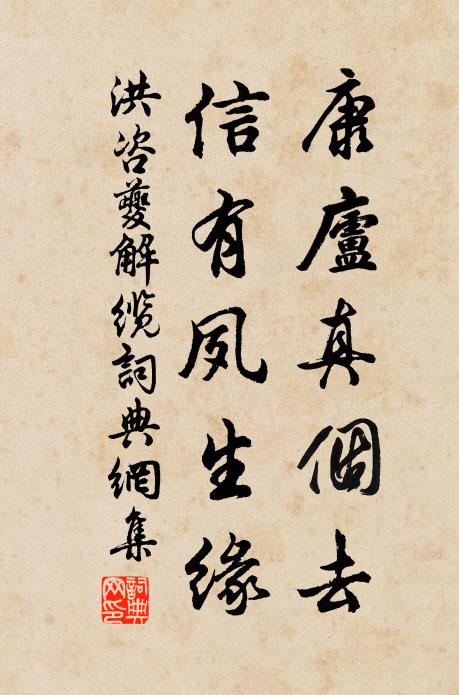 康廬真個去
信有夙生缘
洪咨夔解缆詞典網集
詞典